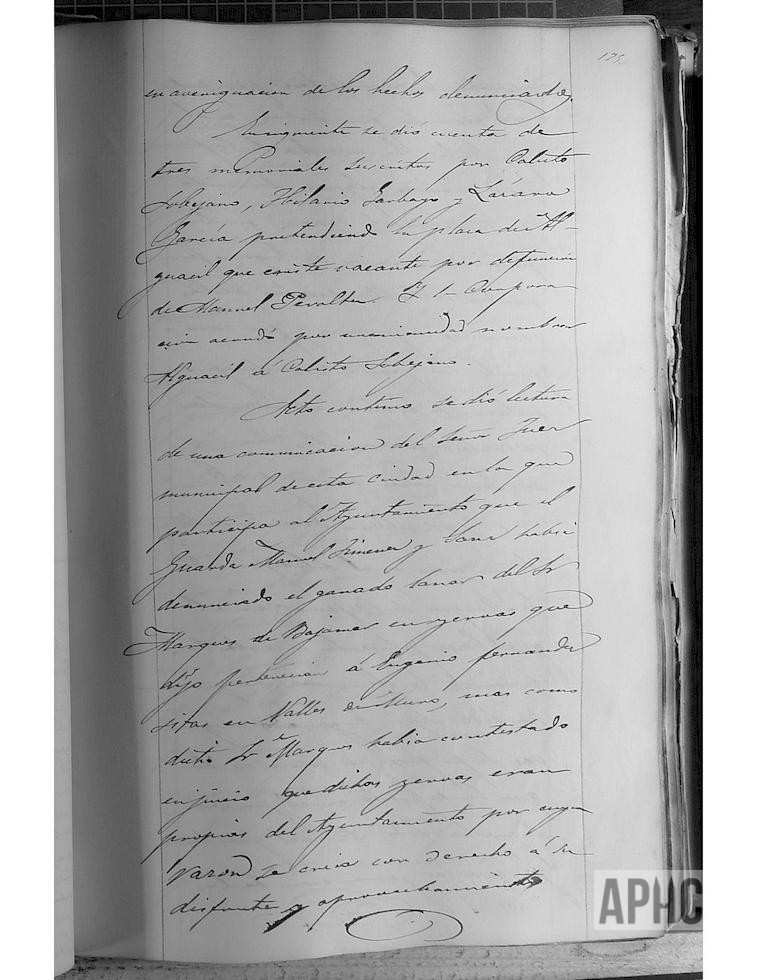 175.
en averiguacion de los hechos denunciados.
Enseguida se dió cuenta de
tres memoriales suscritos por Calisto
Sobejano, Hilario Garbayo y Lázaro
García pretendiend la plaza de Al-
guacil que existe vacante por defuncion
de Manuel Peralta. Y la Corpora
cion acordó por unanimidad nombrar
Alguacil á Calisto Sobejano.
Acto continuo se dió lectura
de una comunicacion del Señor Juez
municipal de esta ciudad en la que
participa al Ayuntamiento que el
Guarda Manuel Jimenez y Sanz habia
denunciado el ganado lanar del Sr
Marques de Bajamar en yervas que
dijo pertenecian á Eugenio fernandez
sitas en Valles de Muro, mas como
dicho Sr Marques habia contestado
en juicio que dichas yervas eran
propias del Ayuntamiento por cuya
razon se creia con derecho á su
disfrute y aprovechamiento
APHC